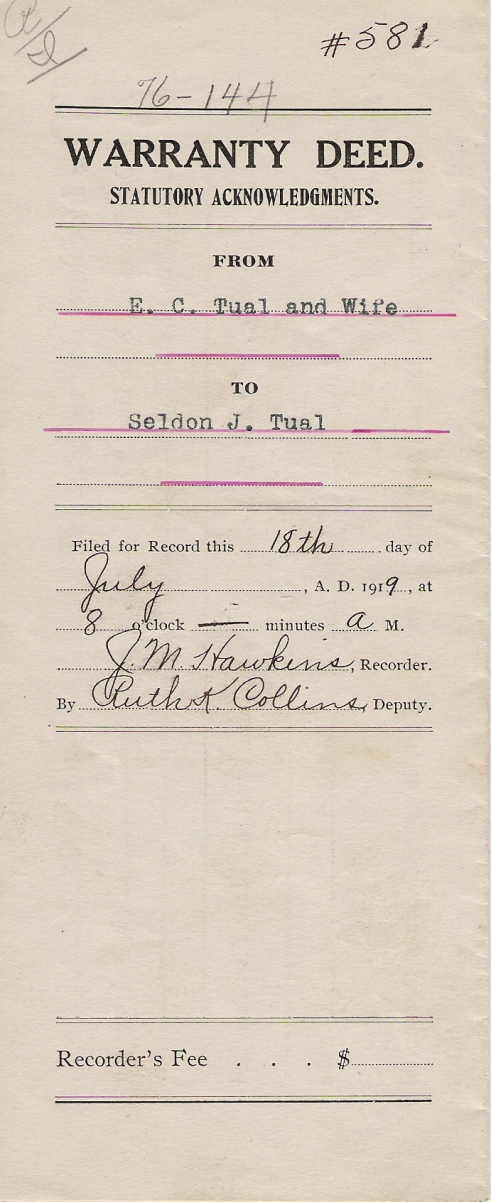 #581
76-144
WARRANTY DEED.
STATUTORY ACKNOWLEDGMENTS.
FROM
E. C. Tual and Wife
TO
Seldon J. Tual
Filed for Record this 18th day of
July, A. D. 1919, at
8 o'clock — minutes a M.
J. M. Hawkins, Recorder.
By Ruth K. Collins, Deputy.
Recorder's Fee . . . $